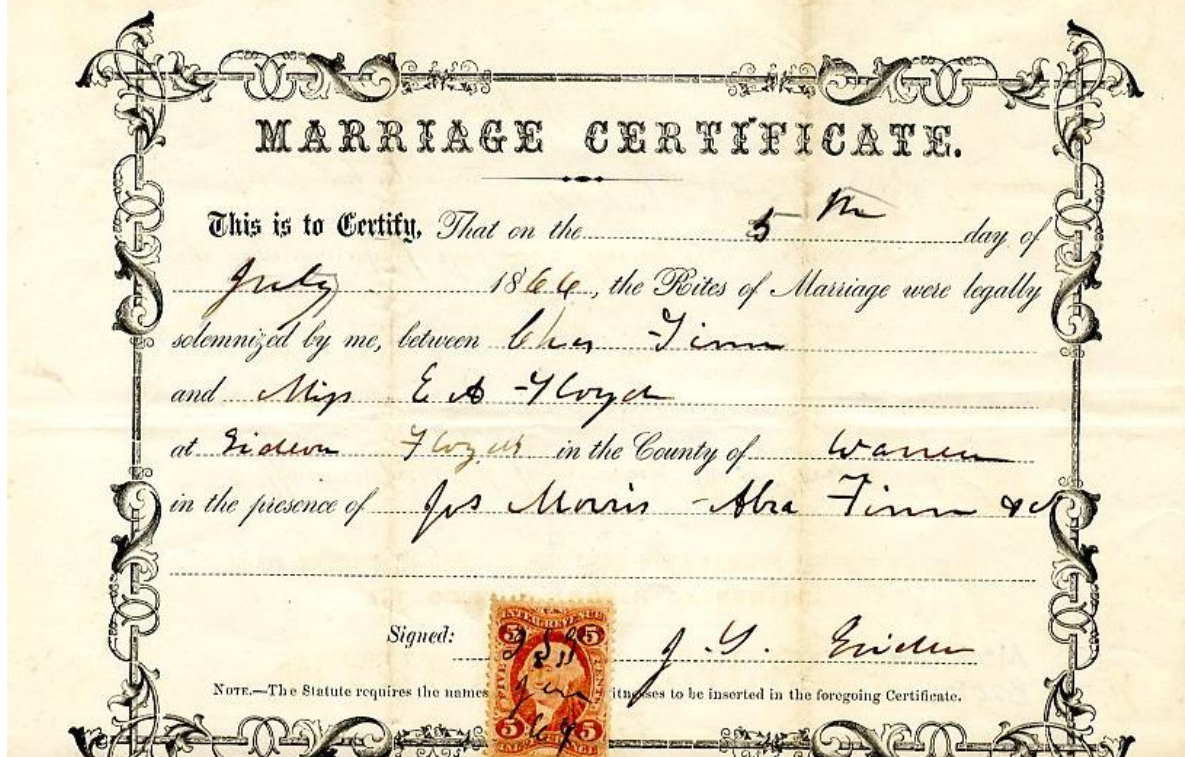 MARRIAGE CERTIFICATE.
This is to Certify, That on the 5th day of
July 1866, the Rites of Marriage were legally
solemnized by me, between Chas Finn
and Miss E A Floyd
at Gideon Floyds in the County of Warren
in the presence of Jos Morris - Abra Finn &c
Signed: J. G.
NOTE.—The Statute requires the names itnesses to be inserted in the foregoing Certificate.
5 5
FIVE CENTS
5 5